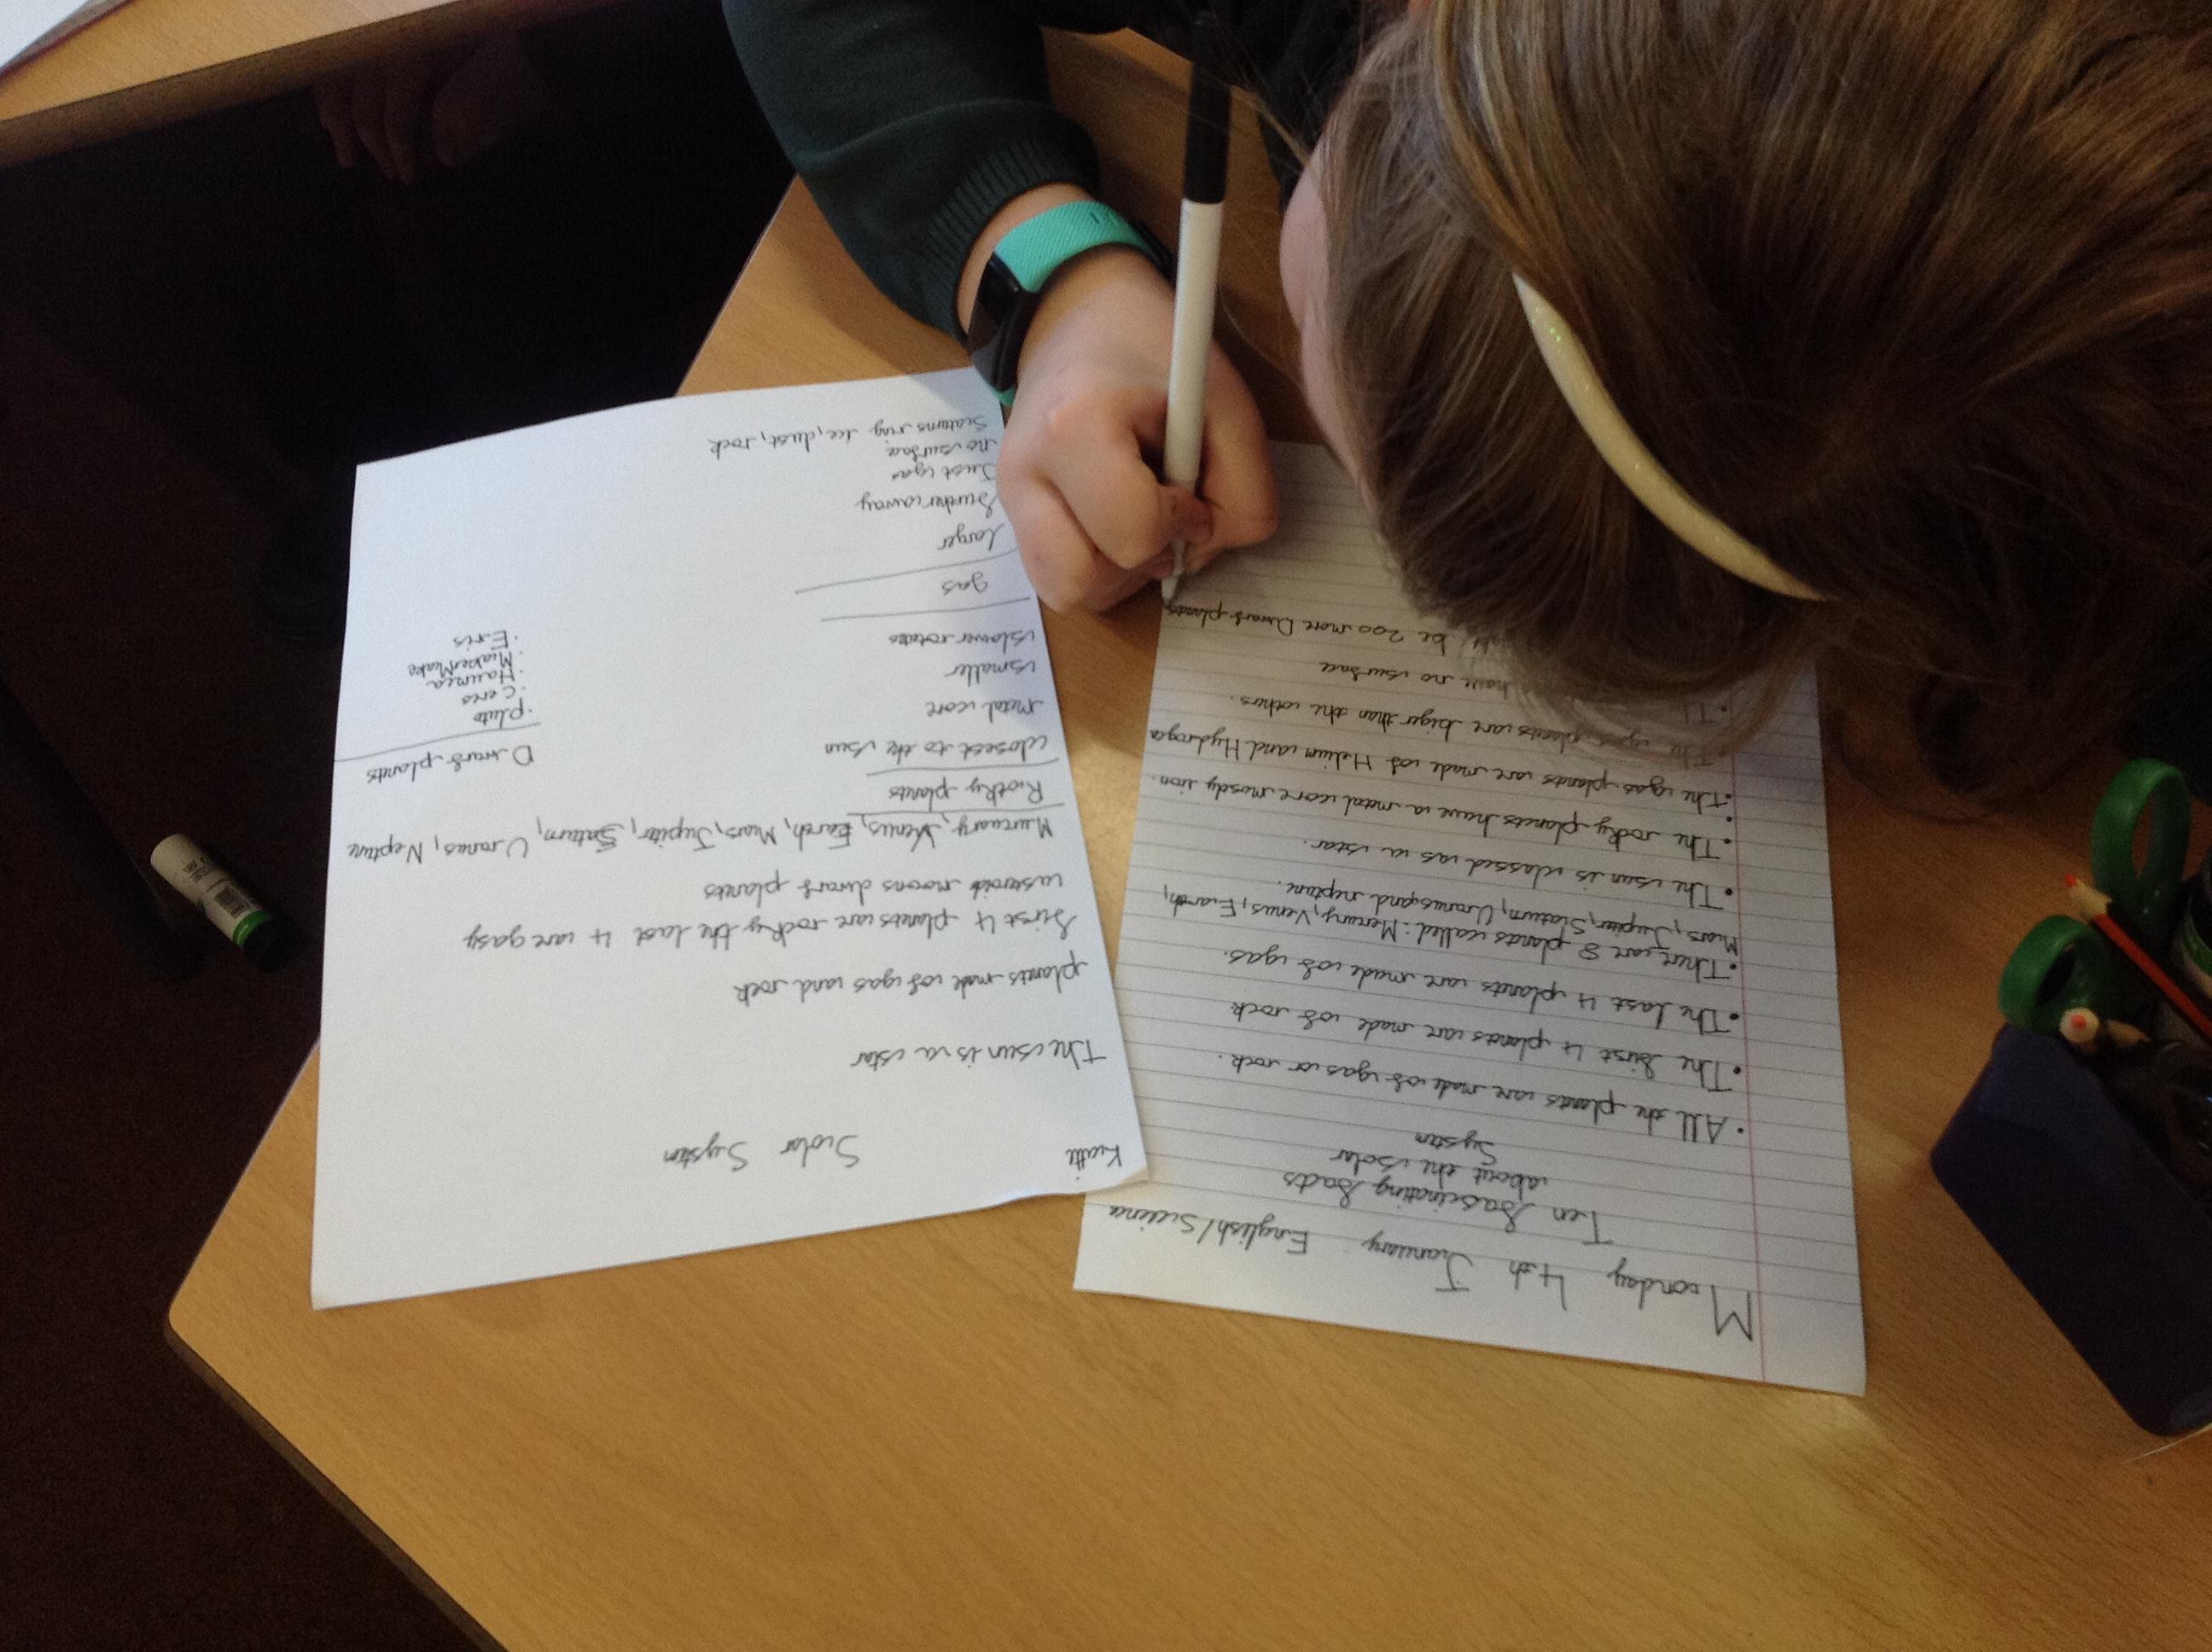 Monday 4th January English/Science
Ten fascinating facts
about the solar
System
• All the planets are made of gas or rock.
• The first 4 planets are made of rock
• The last 4 planets are made of gas.
• There are 8 planets called: Mercury, Venus, Earth,
Mars, Jupiter, Staturn, Uranus and neptune.
• The sun is classed as a star.
• The rocky planets have a metal core mostly iron.
• The gas planets are made of Helium and Hydroga
• The gas planets are biger than the others.
have no surface
be 200 more Dwarf planets
Solar System
The sun is a star
planets made of gas and rock
first 4 planets are rocky the last 4 are gasy
asteroid moons dwarf planets
Murcuary, Venus, Earth, Mars, Jupiter, Saturn, Uranus, Neptune
Rocky planets
closest to the sun
metal core
smaller
slower rotates
gas
larger
further away
Just gas
no surface
Scaturns ring ice, dust, rock
Dwarf planets
• Pluto
• Ceres
• Haumea
• MakeMake
• Eris